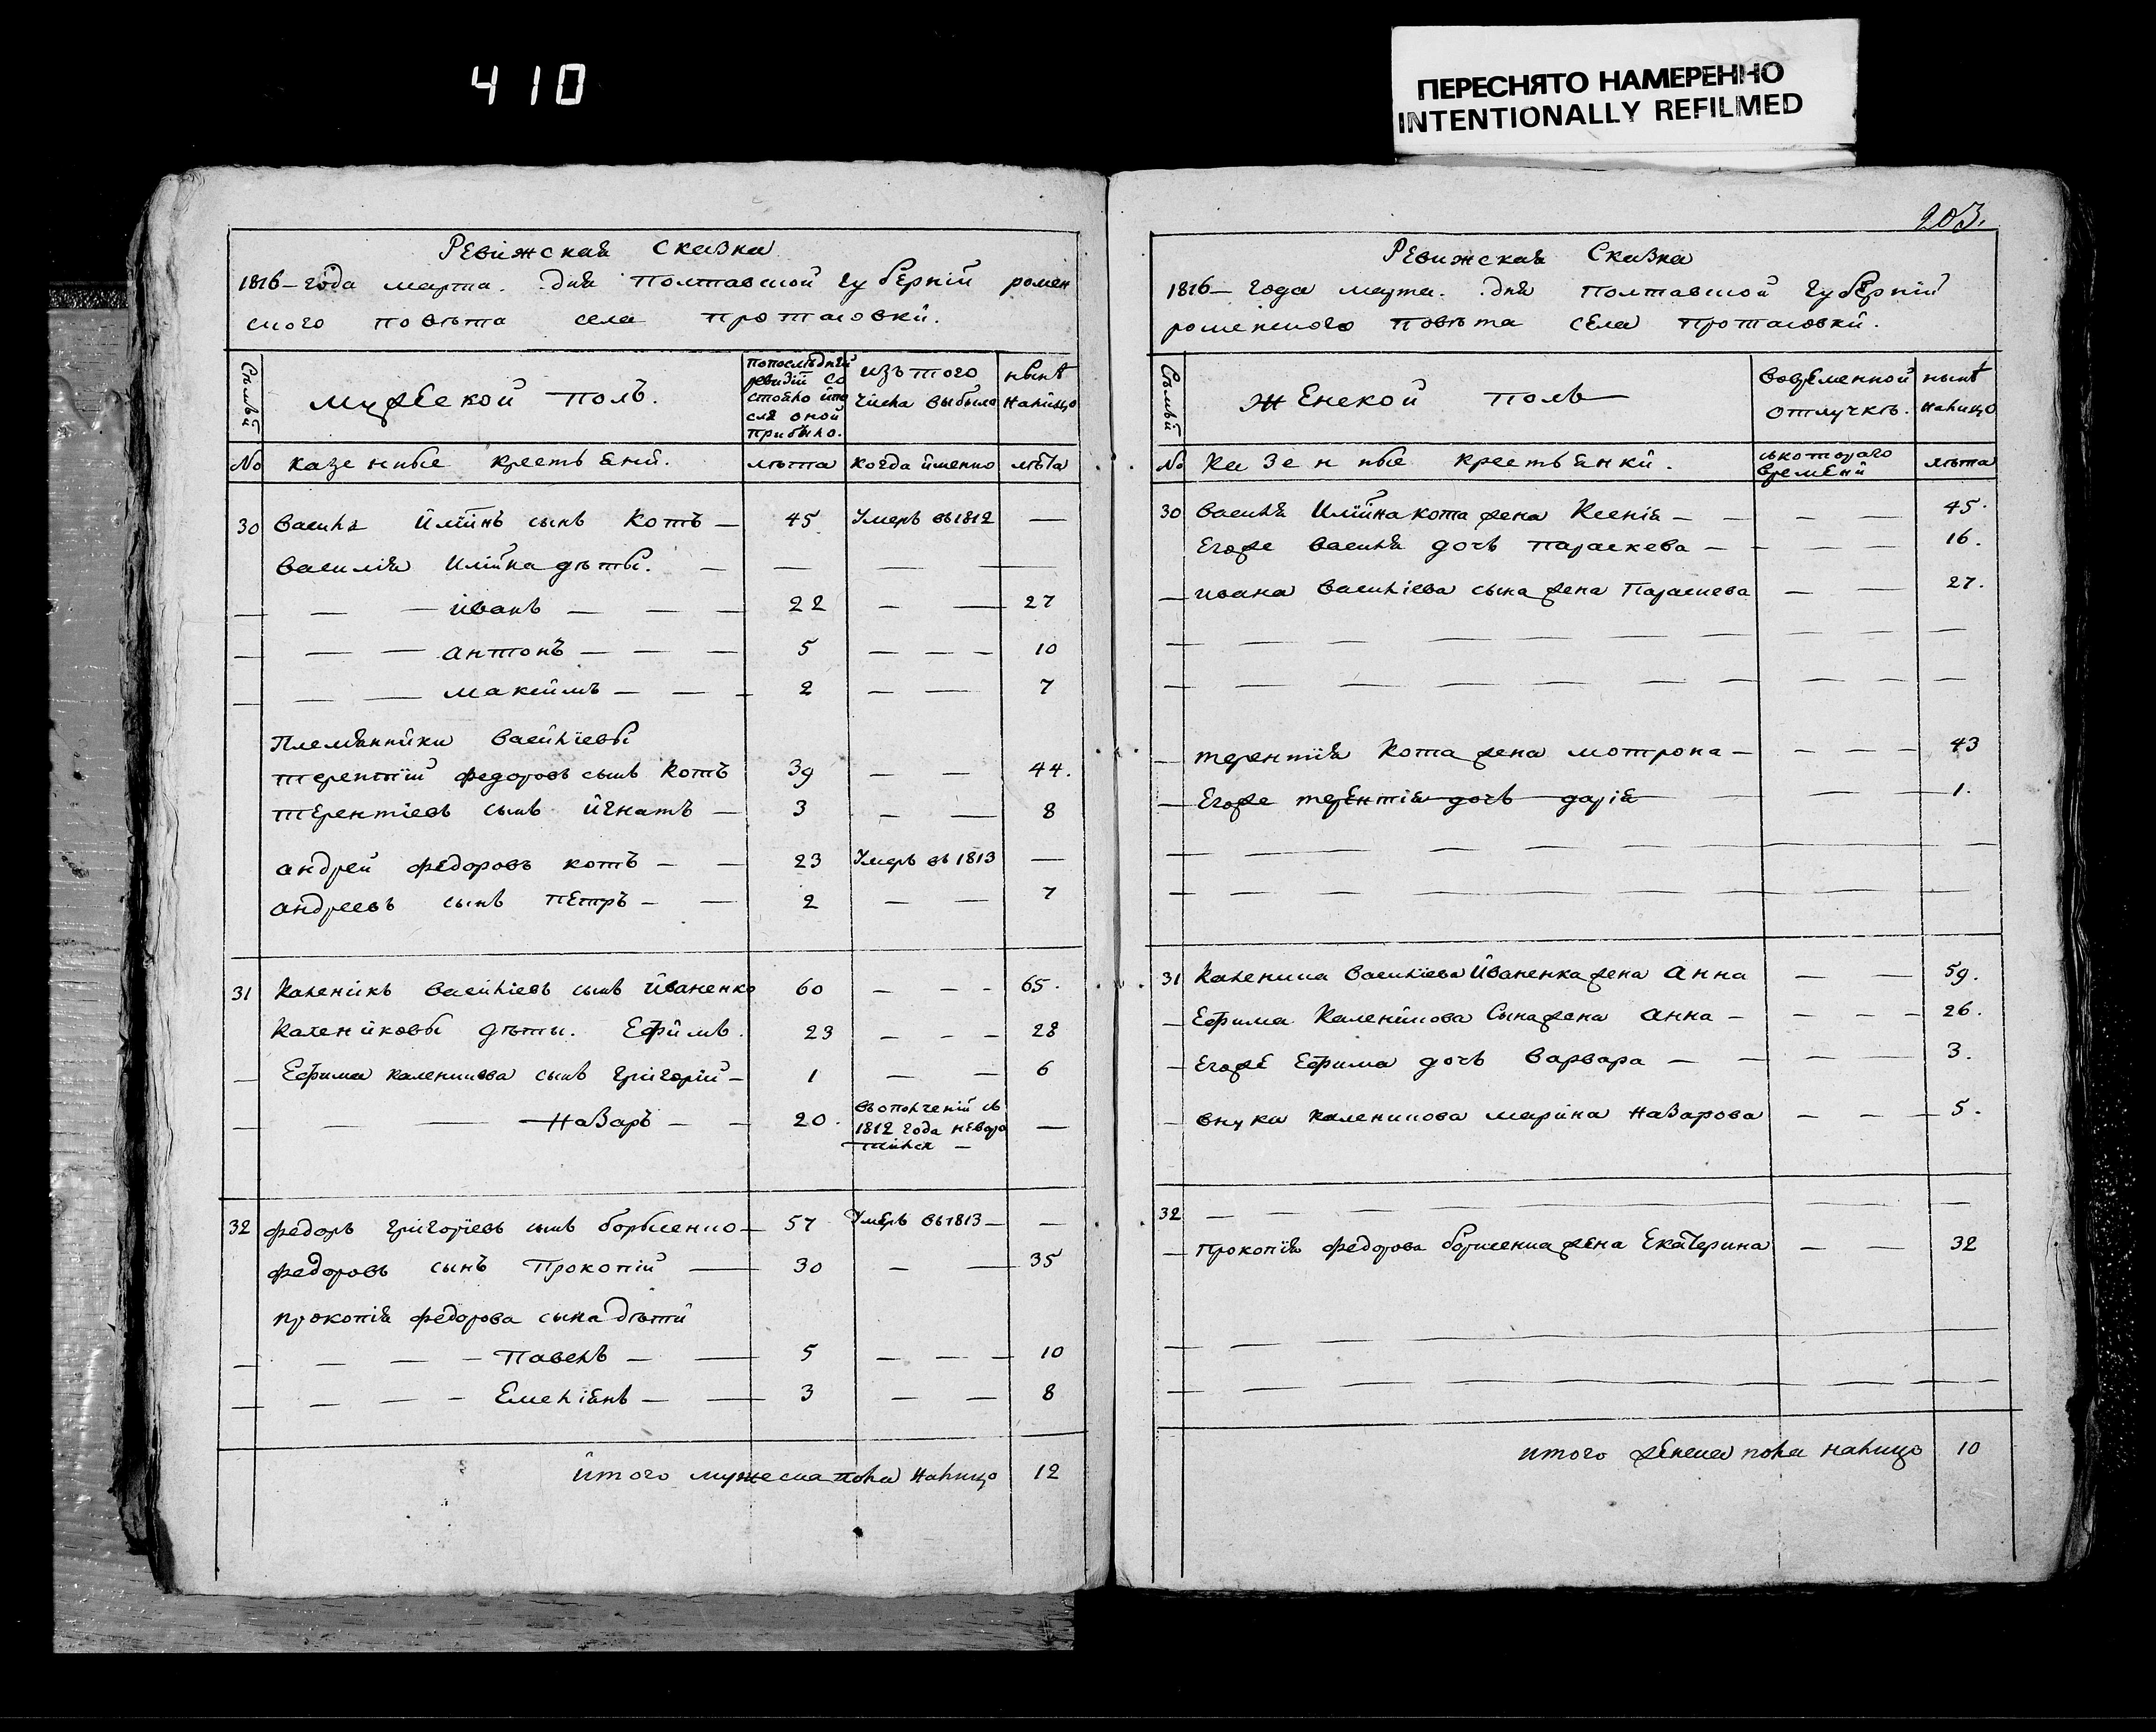 410
ПЕРЕСНЯТО НАМЕРЕННО
INTENTIONALLY REFILMED
Ревижская сказка
1816 – года марта . дня Полтавской губерній ромен
ского повѣта села протасовки.
Сѣмьи
мужеской полъ.
попослѣдней
ревизій со
стояло ипо
слѣ оной
прибыло.
изъ того
числа выбыло
нынѣ
налицо
№ казенные крестьяни.
лѣта
когда именно
лѣта
30 василь Илiинъ сынъ Котъ — 45 Умеръ въ 1812 —
василія Илiина дѣты. — — — —
— — — иванъ — — — 22 — — 27
— — — антонъ — — — 5 — — — 10
— — — максимъ — — — 2 — — 7
Племянники васильіевы
терентій федоровъ сынъ Котъ 39 — — 44.
терентіевъ сынъ игнатъ — 3 — — 8
андрей федоровъ котъ — — 23 Умеръ въ 1813 —
андреевъ сынъ петръ — — 2 — — 7
31 каленикъ васильіевъ сынъ Иваненко 60 — — — 65.
калениковы дѣты. Ефимъ. 23 — — — 28
— Ефима каленикова сынъ григорій — 1 — — 6
— — — Назаръ — — 20. въополченій съ
1812 года неворо
тился — —
32 федоръ григоріевъ сынъ борисенко — 57 Умеръ въ 1813 — —
федоровъ сынъ Прокопій — 30 — — 35
прокопія федорова сына дѣти
— — — — Павелъ — — 5 — — — 10
— — — — Емеліянъ — — 3 — — 8
итого мужеска пола налицо 12
203.
Ревижская Сказка
1816 – года марта . дня Полтавской губерній
роменского повѣта села протасовки.
Сѣмьи
женской полъ
вовременной
отлучкѣ.
нынѣ
налицо
№ казенные крестьянки.
съкотораго
времени
лѣта
30 василія Илiина кота жена Ксенія — — — — 45.
Егоже василія дочь параскева — — — — 16.
— ивана васильіева сына жена Параскева — — 27.
— терентія Кота жена мотрона — — — — 43
— Егоже терентія дочь дарія — — — 1.
31 каленика васильіева Иваненка жена анна — — 59.
— Ефима Каленикова Сына жена анна — — — — 26.
— Егоже Ефима дочь варвара — — — — 3.
— внука каленикова марина Назарова — — — 5.
32 — — — — — — — —
— прокопія федорова борисенка жена Екатерина — — 32
итого женска пола налицо 10